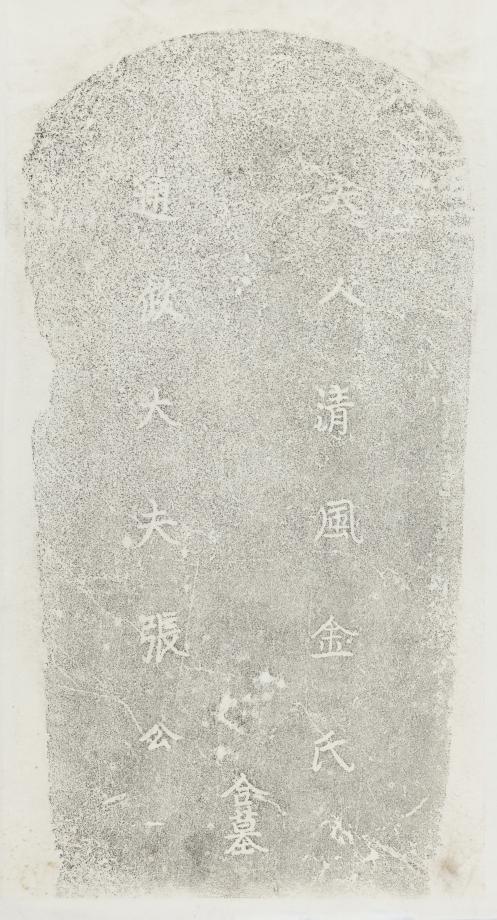 夫人清風金氏
通政大夫張公
合墓